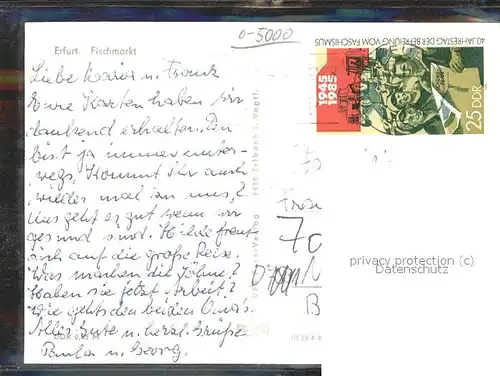 0-5000
Erfurt. Fischmarkt
Liebe Maria u. Frank
Eure Karten haben wir
dankend erhalten. Du
bist ja immer unter-
wegs. Kommt Ihr auch
wieder mal zu uns?
Uns geht es gut wenn wir
gesund sind. Hilde freut
sich auf die große Reise.
Was machen die Söhne?
Haben sie jetzt Arbeit?
Wie gehts den beiden Oma's.
Alles Gute u. herzl. Grüße
Paula u. Georg.
DDR 0,15 M
9655 Erlbach i. Vogtl.
40. JAHRESTAG DER BEFREIUNG VOM FASCHISMUS
1945
1985
25 DDR
Frau
70
B
privacy protection (c)
Datenschutz